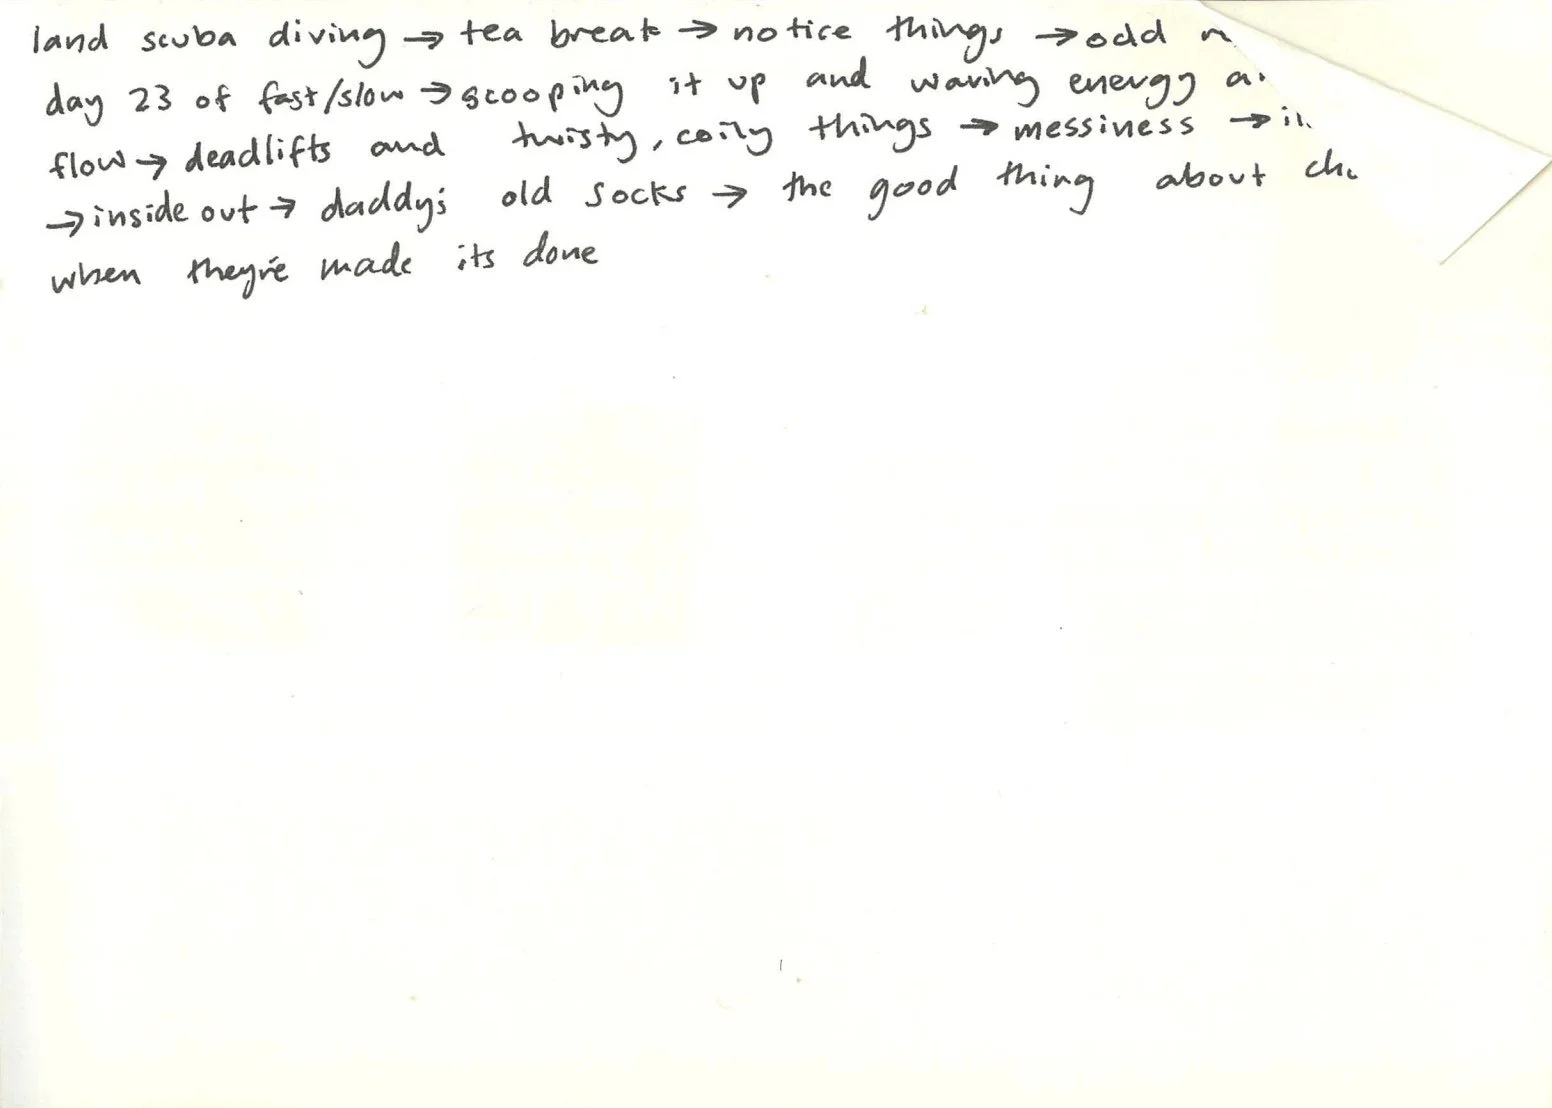 land scuba diving → tea break → notice things → odd
day 23 of fast/slow → scooping it up and waving energy
flow → deadlifts and twisty, coily things → messiness →
→ inside out → daddy's old socks → the good thing about
when they're made its done